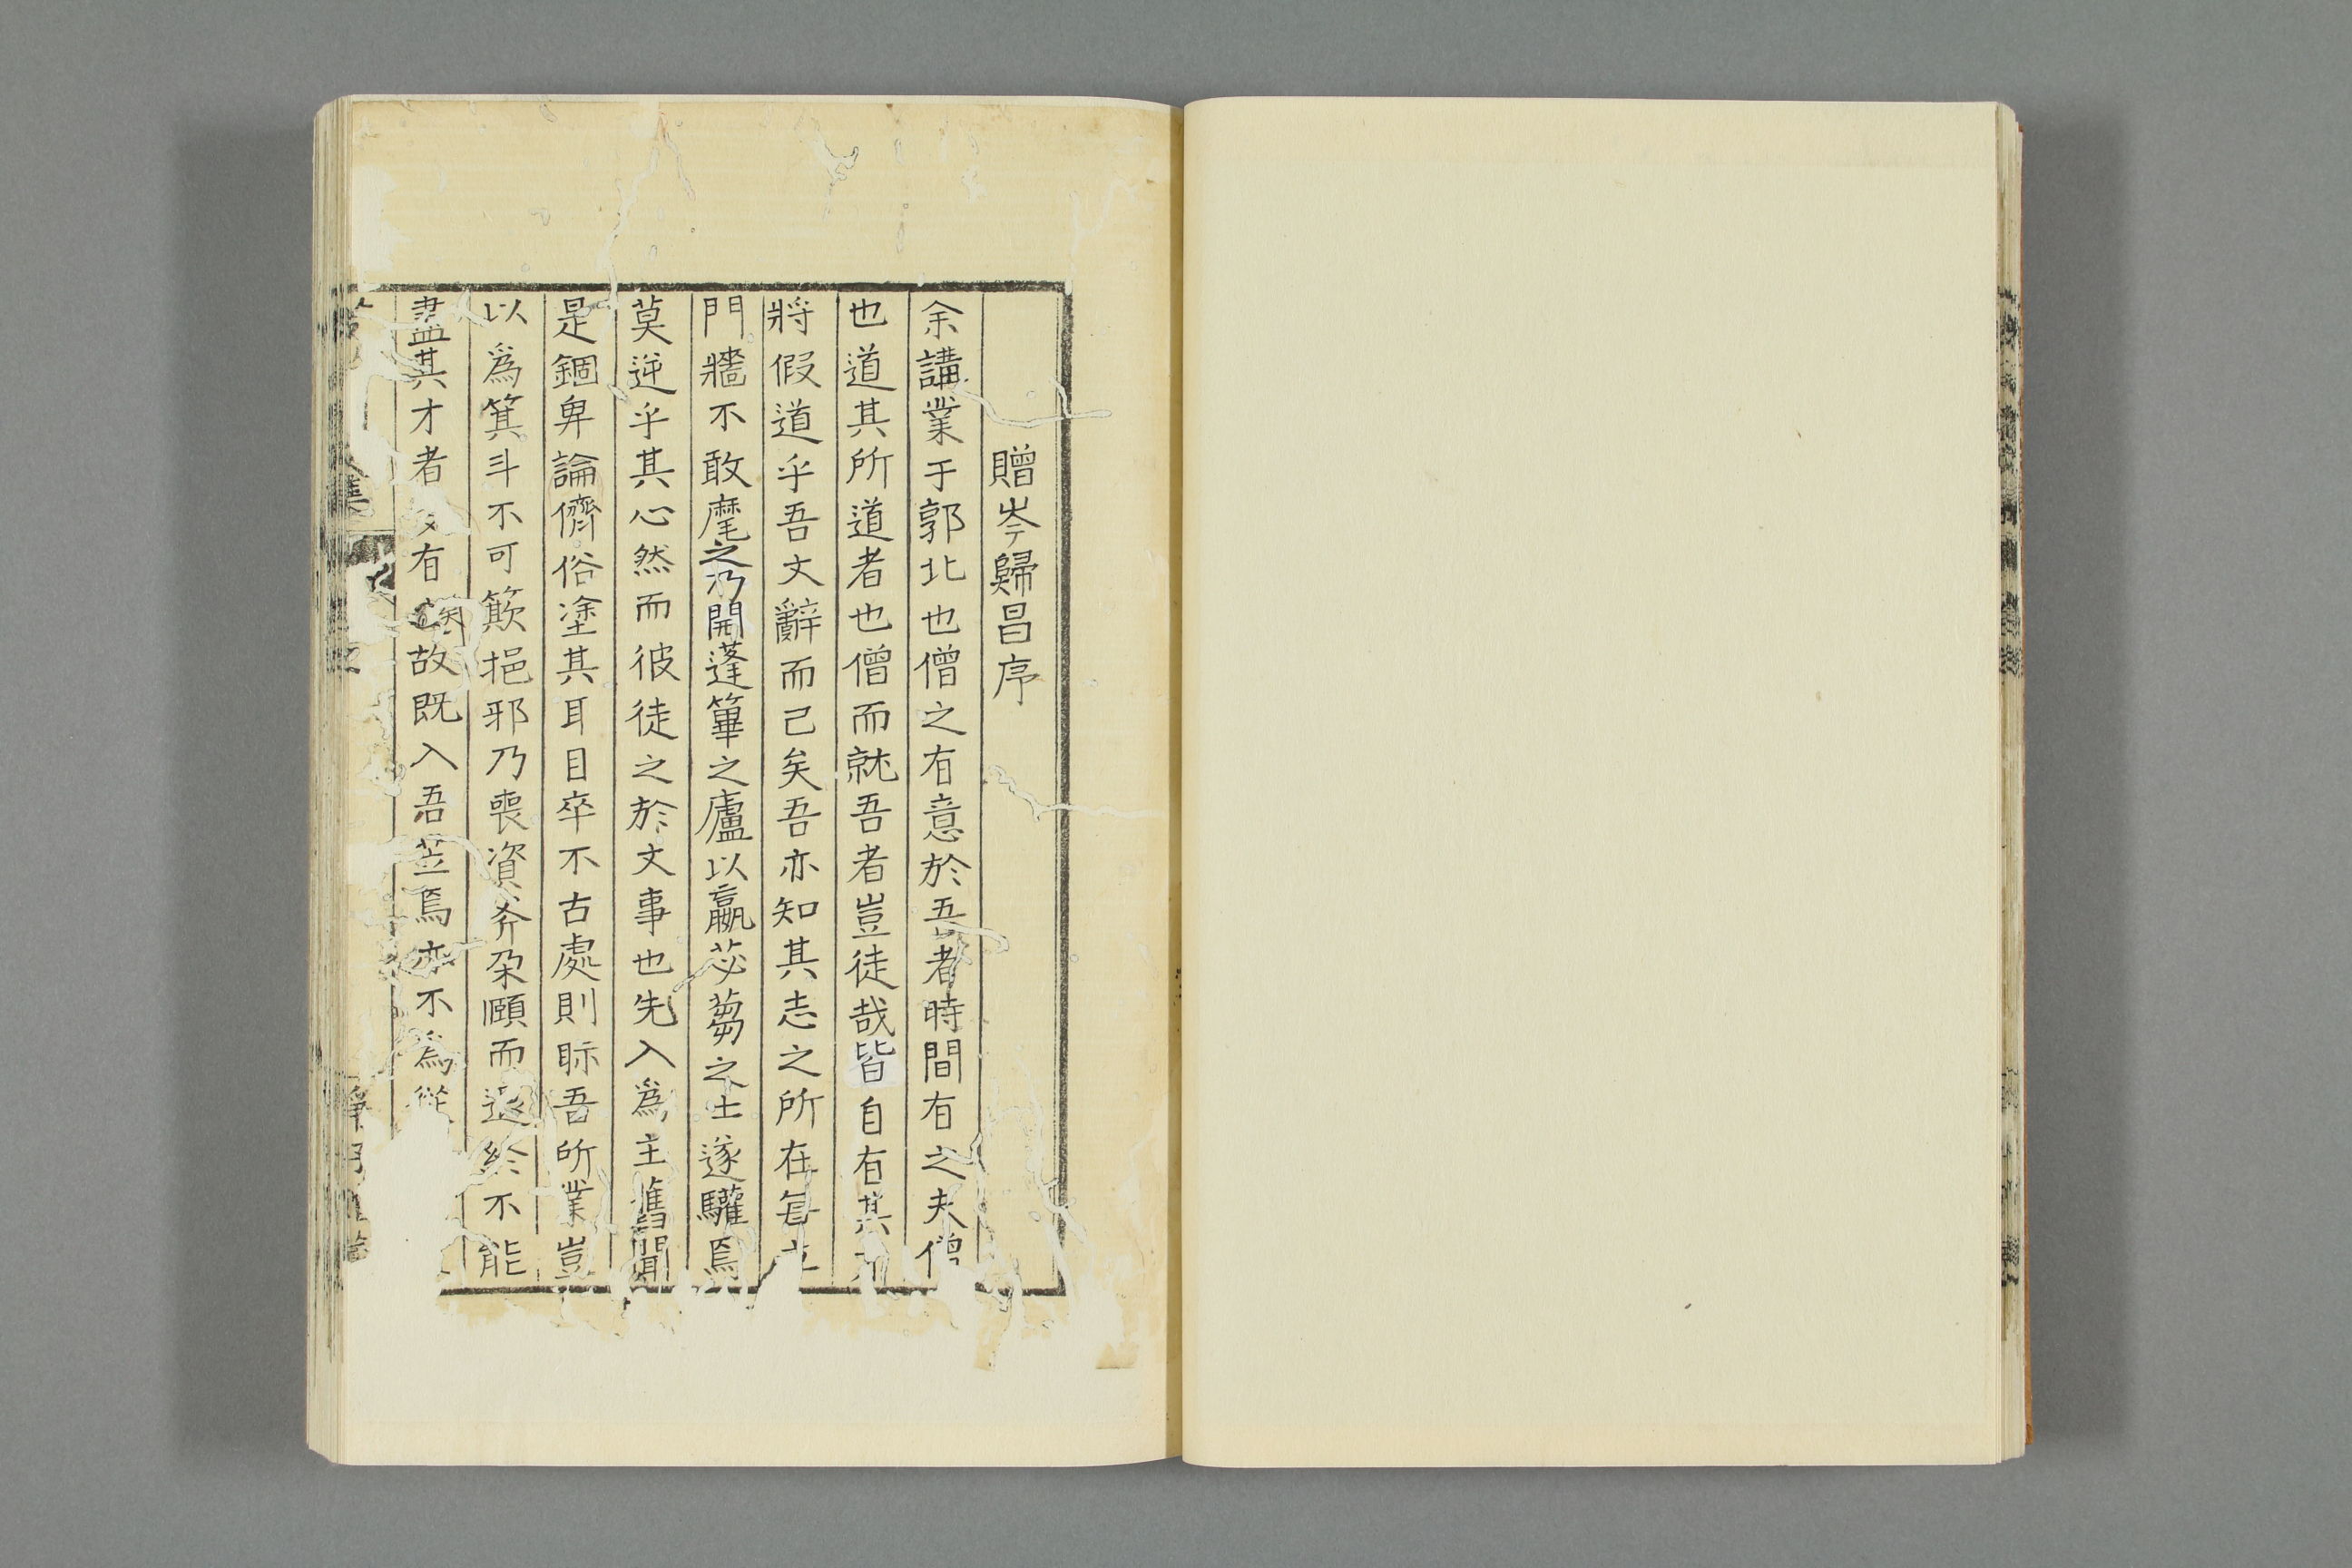 贈岑歸昌序
余講業于郭北也僧之有意於吾者時間有之夫僧
也道其所道者也僧而就吾者豈徒哉皆自有其
將假道乎吾文辭而己矣吾亦知其志之所在每立
門牆不敢麾之乃開蓬篳之廬以羸苾蒭之士遂驩焉
莫逆乎其心然而彼徒之於文事也先入爲主舊聞
是錮卑論儕俗塗其耳目卒不古處則眎吾所業豈
以爲箕斗不可簸挹邪乃喪資斧朶頤而還終不能
盡其才者有矣故既入吾苙焉亦不爲從
集